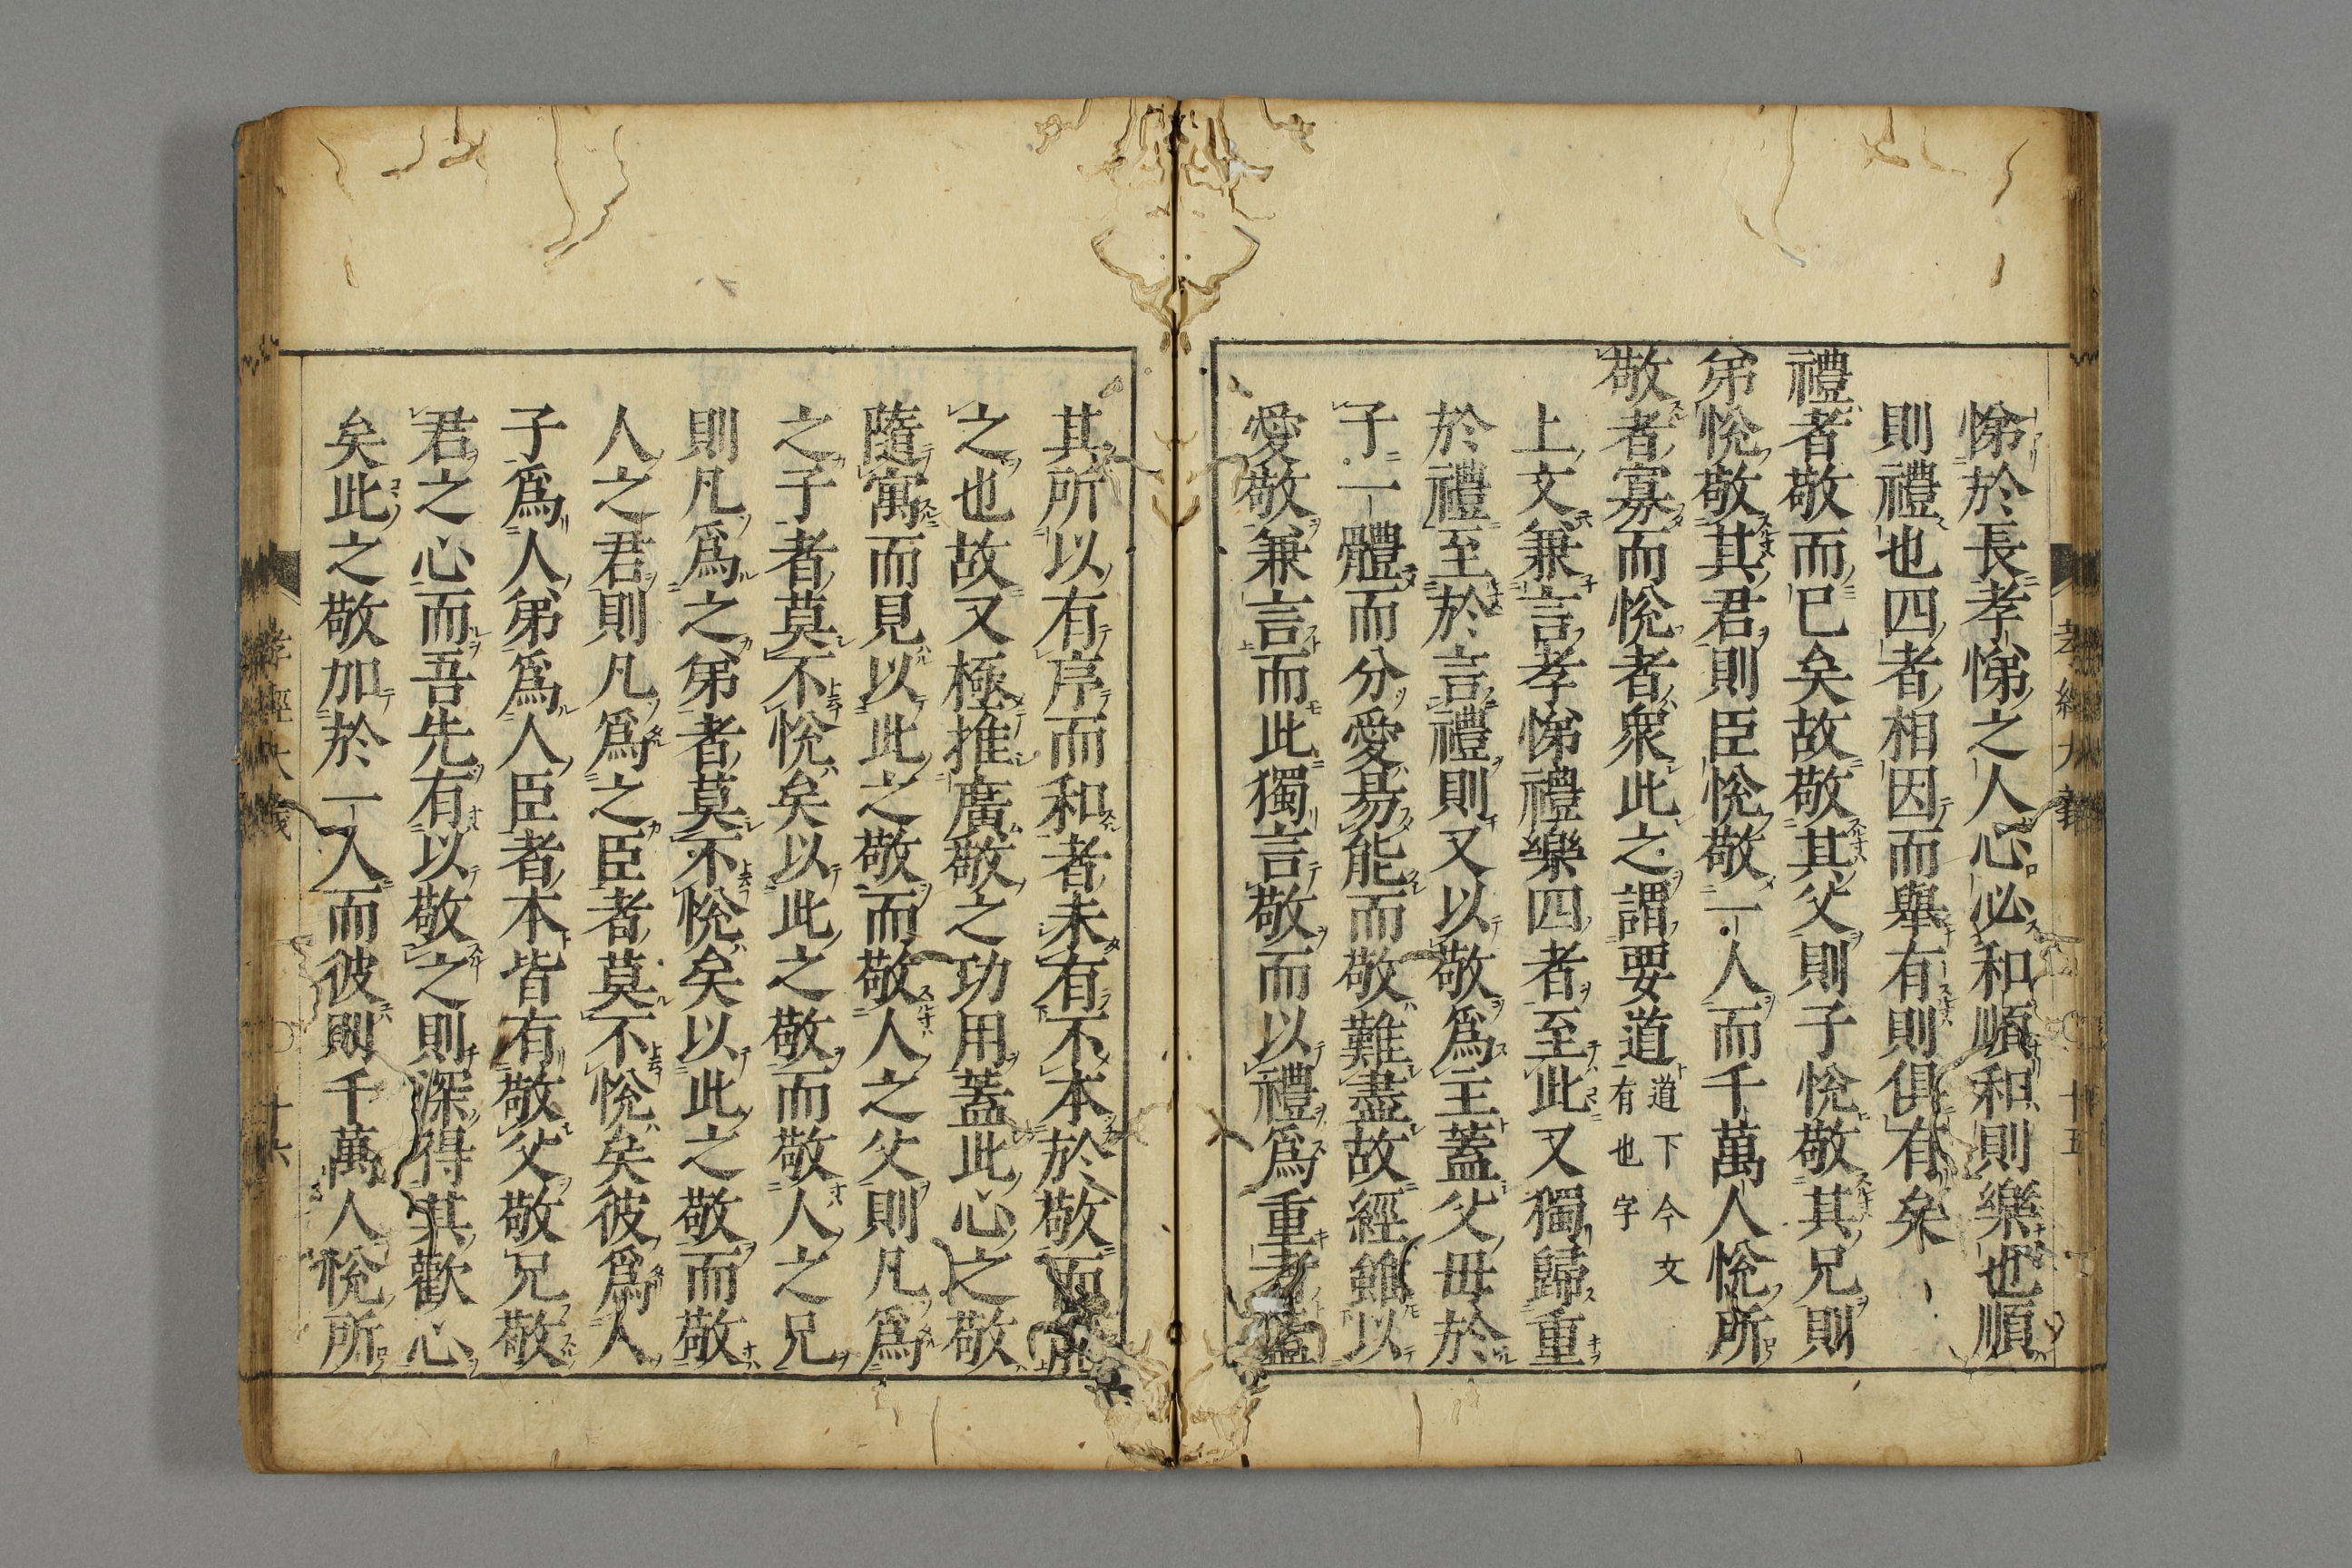 悌於長孝悌之人心必和順和則樂也順
則禮也四者相因而舉有則俱有矣
禮者敬而已矣故敬其父則子悅敬其兄則
弟悅敬其君則臣悅敬一人而千萬人悅所
敬者寡而悅者衆此之謂要道
道下今文
有也字
上文兼言孝悌禮樂四者至此又獨歸重
於禮至於言禮則又以敬爲主蓋父母於
子一體而分愛易能而敬難盡故經雖以
愛敬兼言而此獨言敬而以禮爲重者蓋
其所以有序而和者未有不本於敬而能
之也故又極推廣敬之功用蓋此心之敬
隨寓而見以此之敬而敬人之父則凡爲
之子者莫不悅矣以此之敬而敬人之兄
則凡爲之弟者莫不悅矣以此之敬而敬
人之君則凡爲之臣者莫不悅矣彼爲人
子爲人弟爲人臣者本皆有敬父敬兄敬
君之心而吾先有以敬之則深得其歡心
矣此之敬加於一人而彼則千萬人悅所
孝經大義
十五
孝經大義
十六